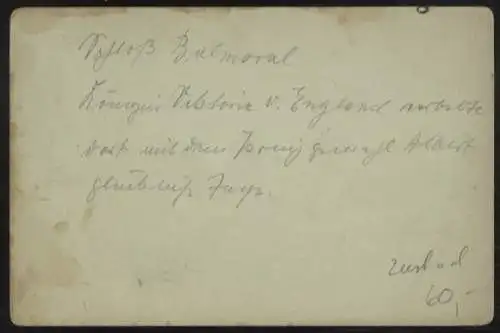 Schloß Balmoral
Königin Viktoria v. England verlebte
dort mit dem Prinzgemahl Albert
glückliche Tage.
60,-